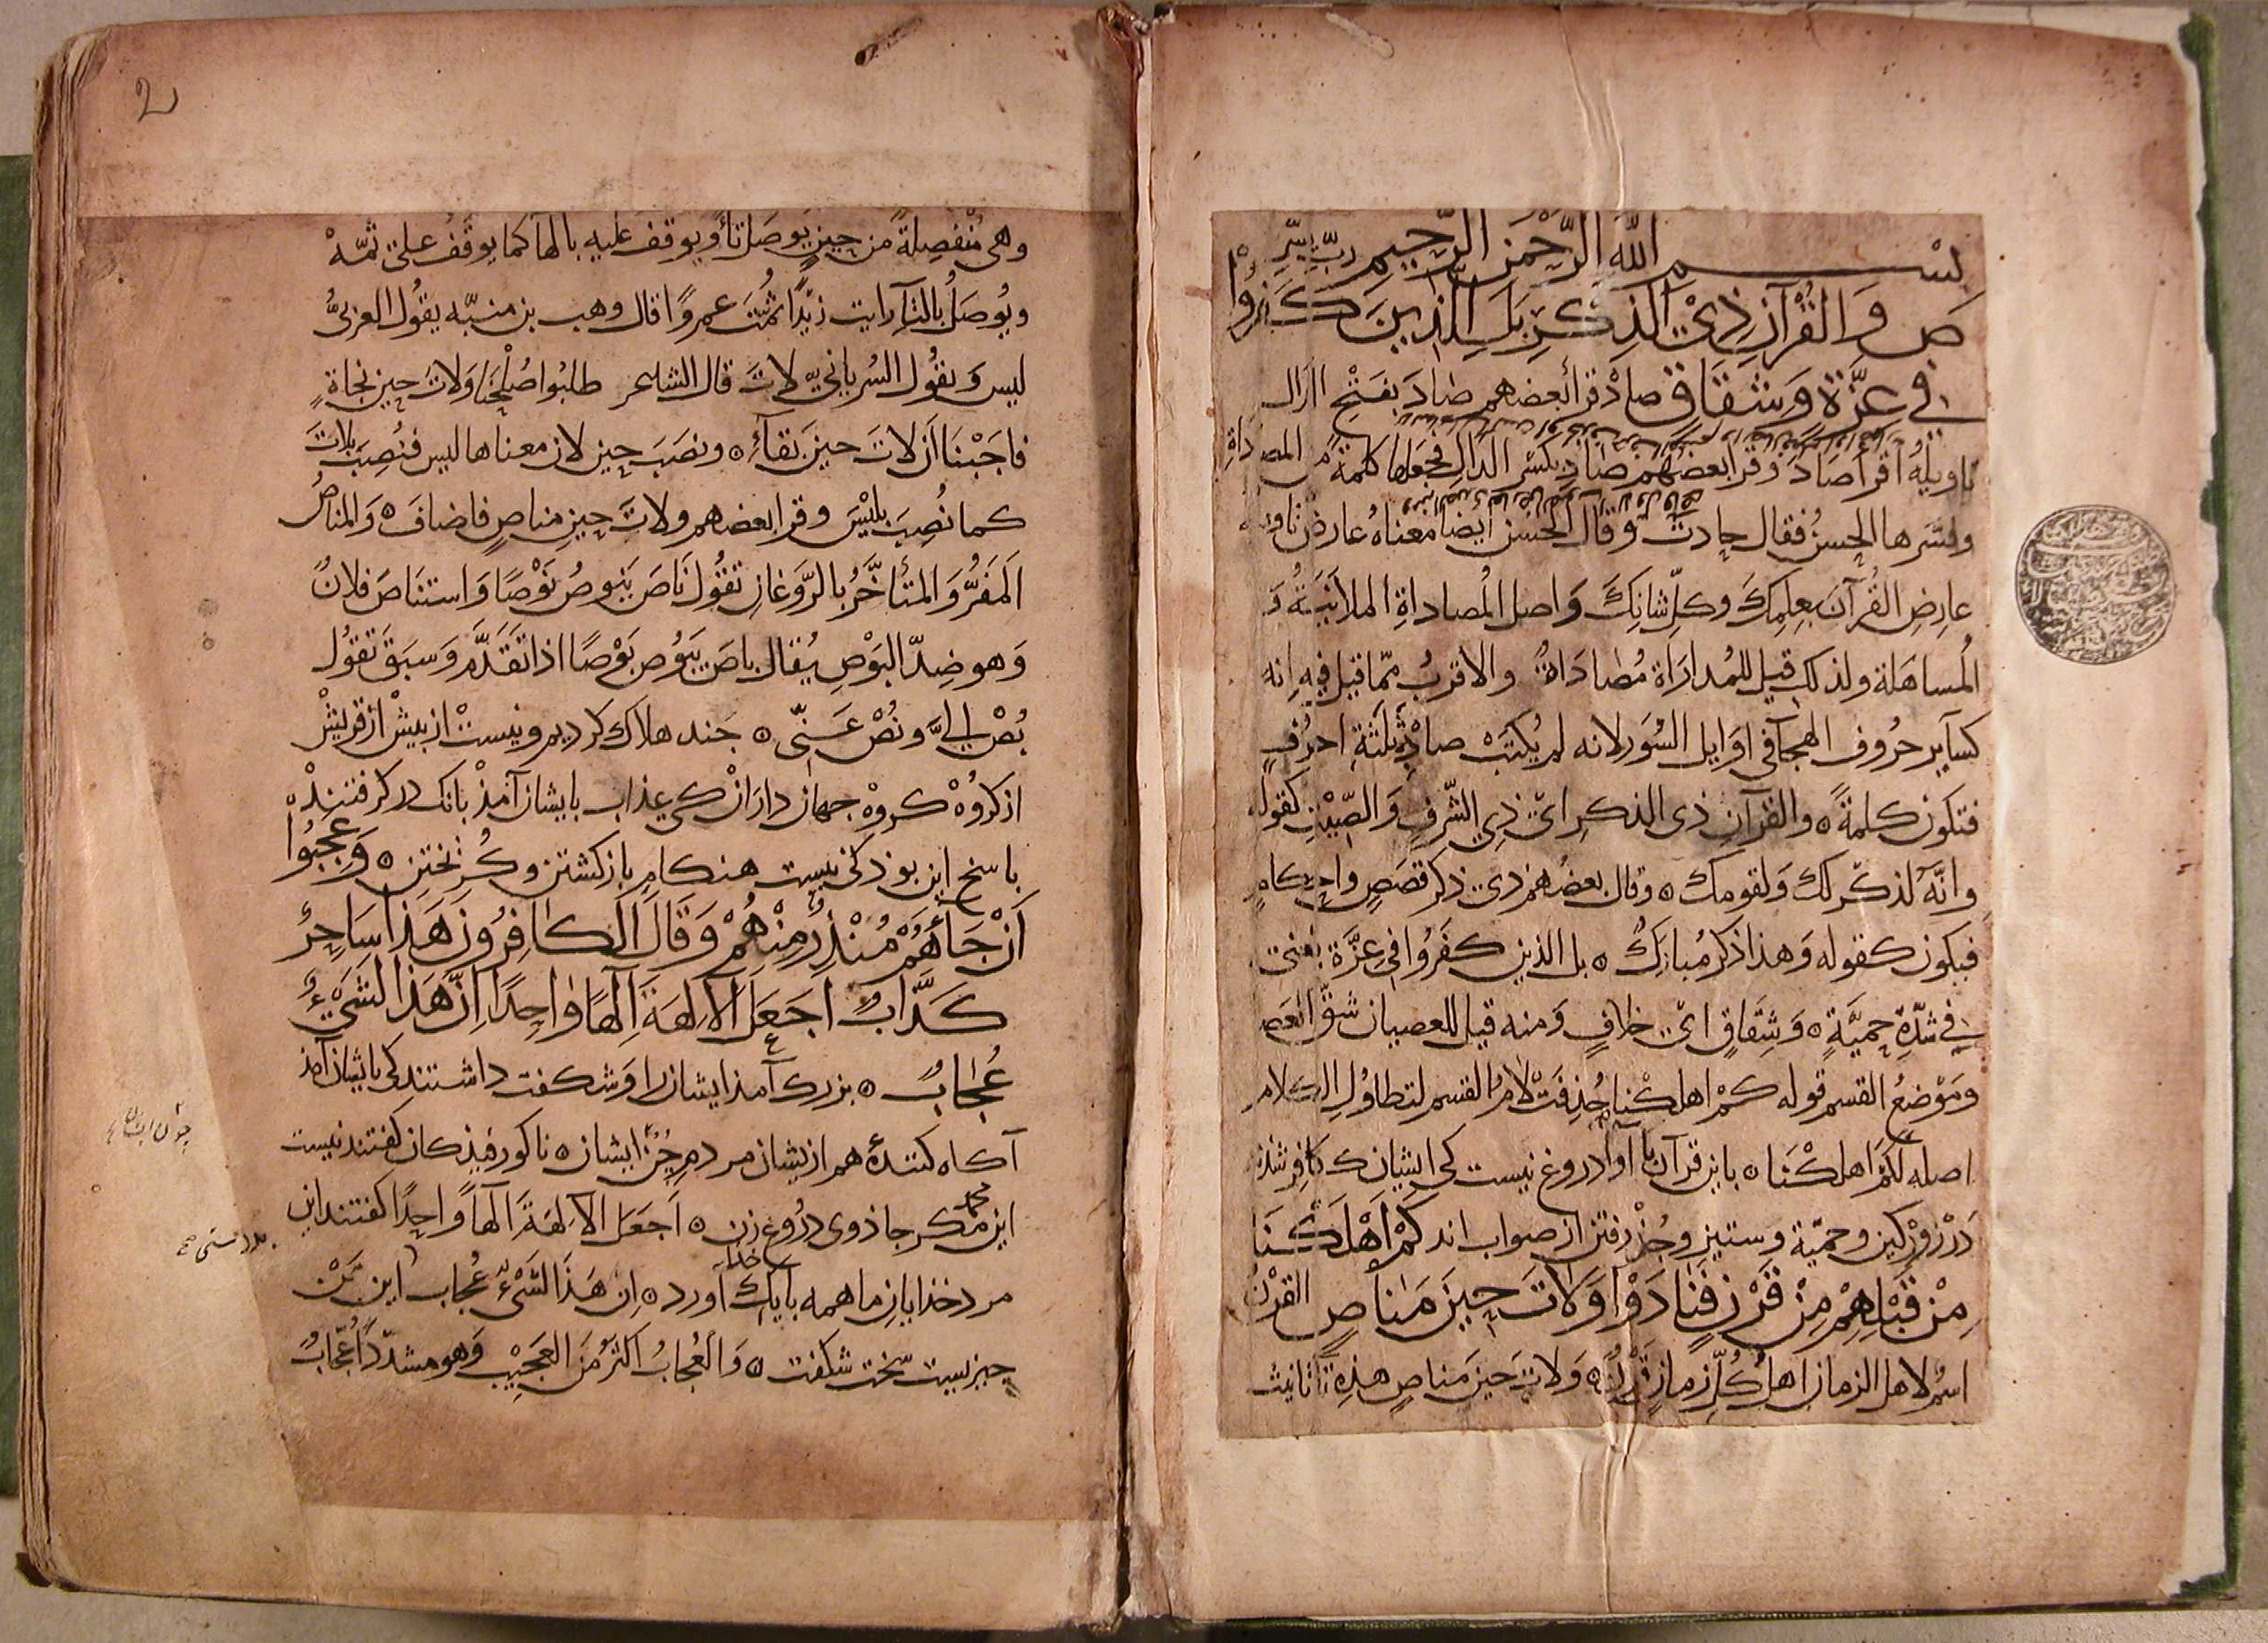 بسم الله الرحمن الرحيم رب يسر
ص وَالقُرْآنِ ذِي الذِكرِ بَلِ الذِينَ كَفَرُوْا
في عِزَّةٍ وَشِقَاقٍ صادْ قرأ بعضهم صادَ بفَتْحِ الدال
تاويله اقرأ صادَ وقرا بعضهم صادِ بكسر الدال فجعلها كلمة من المصاداةِ
وفسّرها الحسنُ فقال حادث وقال الحسن ايضا معناه عارض
عارِضِ القُرآنَ بعِلمِكَ وَاصل المُصاداةِ الملاينَةُ وَ
المُساهَلة ولذلك قيل للمُدارَاة مُصَادَاةٌ والاقربُ ممّا قيل فيه انه
كسآير حرُوف الهجآ في اوَايل السُوَر لانه لم يُكتَبْ صادْ بثلثةِ احرُفٍ
فتكون كلمةً ٥ والقرآنِ ذى الذكرِ اىْ ذِي الشّرفِ وَالصِّيْتِ كقوله
وانّه لذكر لك وَلقومك ٥ وقال بعضهم ذي ذكر قصَصٍ واحكامٍ
فيكون كقوله وَهذا ذكر مُبارَكٌ ٥ بل الذين كفَرُوا في عِزَّة يعني
في شدّةِ حميَّةٍ ٥ وَشِقاقٍ اىْ خلافٍ وَمنه قيل للعصيان شقّ العصا
ومَوْضعُ القسم قوله كمْ اهلكْنا حُذِفَتْ لامُ القسم لتطاوُلِ الكلام
اصله لكَمْ اهلكْنَا ٥ باين قرآن با آوا دروغ نيست كى ايشان ك كافر شدند
دَرْ زوْر كين وحميّة وستيز وجُزْ رفتن از صواب اند كَمْ اَهْلَكْنَا
مِنْ قَبْلِهِمْ مِنْ قَرْنٍ فَنَادَوْا وَلَاتَ حِينَ مَنَاصٍ القرْنُ
اسم لاهل الزمان اهلُ كُلّ زمانٍ قَرْنٌ ٥ وَلاتَ حينَ مَناصٍ هذِه تآ تانيث
وهى مُنْفصِلةٌ من حينٍ يوصَل تآً ويوقف عليه بالها كما يوقفُ على ثمّهْ
ويُوصَلُ بالتآ رايت زيْدًا ثُمَّتَ عمروًا قال وهب بن منبّه يقُول العربىُّ
ليس وَيقُول السُريانىّ لاتَ قال الشاعر طلبُوا صُلْحَنا وَلاتَ حينَ نجاةٍ
فاجَبْنَا اَن لاتَ حينَ بقآءِ ٥ ونصَبَ حين لان معناها ليس فنُصِبَ بلاتَ
كما نُصِبَ بليْسَ وقرا بعضهم ولاتَ حينِ مناصٍ فاضافَ ٥ وَالمناصُ
المَفَرُّ وَالمتأخَّرُ بالرَّوَغانِ تقُول نَاصَ يَنوصُ نَوْصًا وَاستنَاصَ فلانٌ
وَهو ضدّ البَوْصِ يُقال باصَ يَبُوص بَوْصًا اذا تقَدَّم وَسبَق تَقول
بُصْ الىّ وَنُصْ عَنّى ٥ جَند هلاك كرديم ونيستْ از بيش از قريشْ
از كروُهْ كروهْ جهان دارَانْ كى عذاب بايشان آمذ بانك در كرفتندْ
باسخ اين بوذ كى نيست هنكام بازكشتن وكُرِيختن ٥ وَعَجِبُوْا
اَنْ جَاءَهُمْ مُنْذِرٌ مِنْهُمْ وَقَالَ الكافِرُونَ هَذا سَاحِرٌ
كَذَّابٌ اَجَعَلَ الآلِهَةَ اِلَهًا وَاحِدًا اِنَّ هَذا لَشَيْءٌ
عُجَابٌ ٥ بزرك آمذ ايشان را وَشكفت داشتند كى بايشان آمذ
آكاه كنندهٔ هم از ايشان مردم جُنْ ايشان ٥ ناكورفيذكان كفتند نيست
اين محمد مكر جاذوى دروُغ زن ٥ اَجَعَلَ الآلِهَةَ اِلَهًا وَاحِدًا كفتند اين
مرد خذايانِ ما همه بايك خدا آورد ٥ اِن هَذا لَشَىْءٌ عُجاب اين
جيزيست سخت شكفت ٥ وَالعُجابُ اكثرُ منَ العجيْبِ وَهو مشدّدًا عُجّابٌ